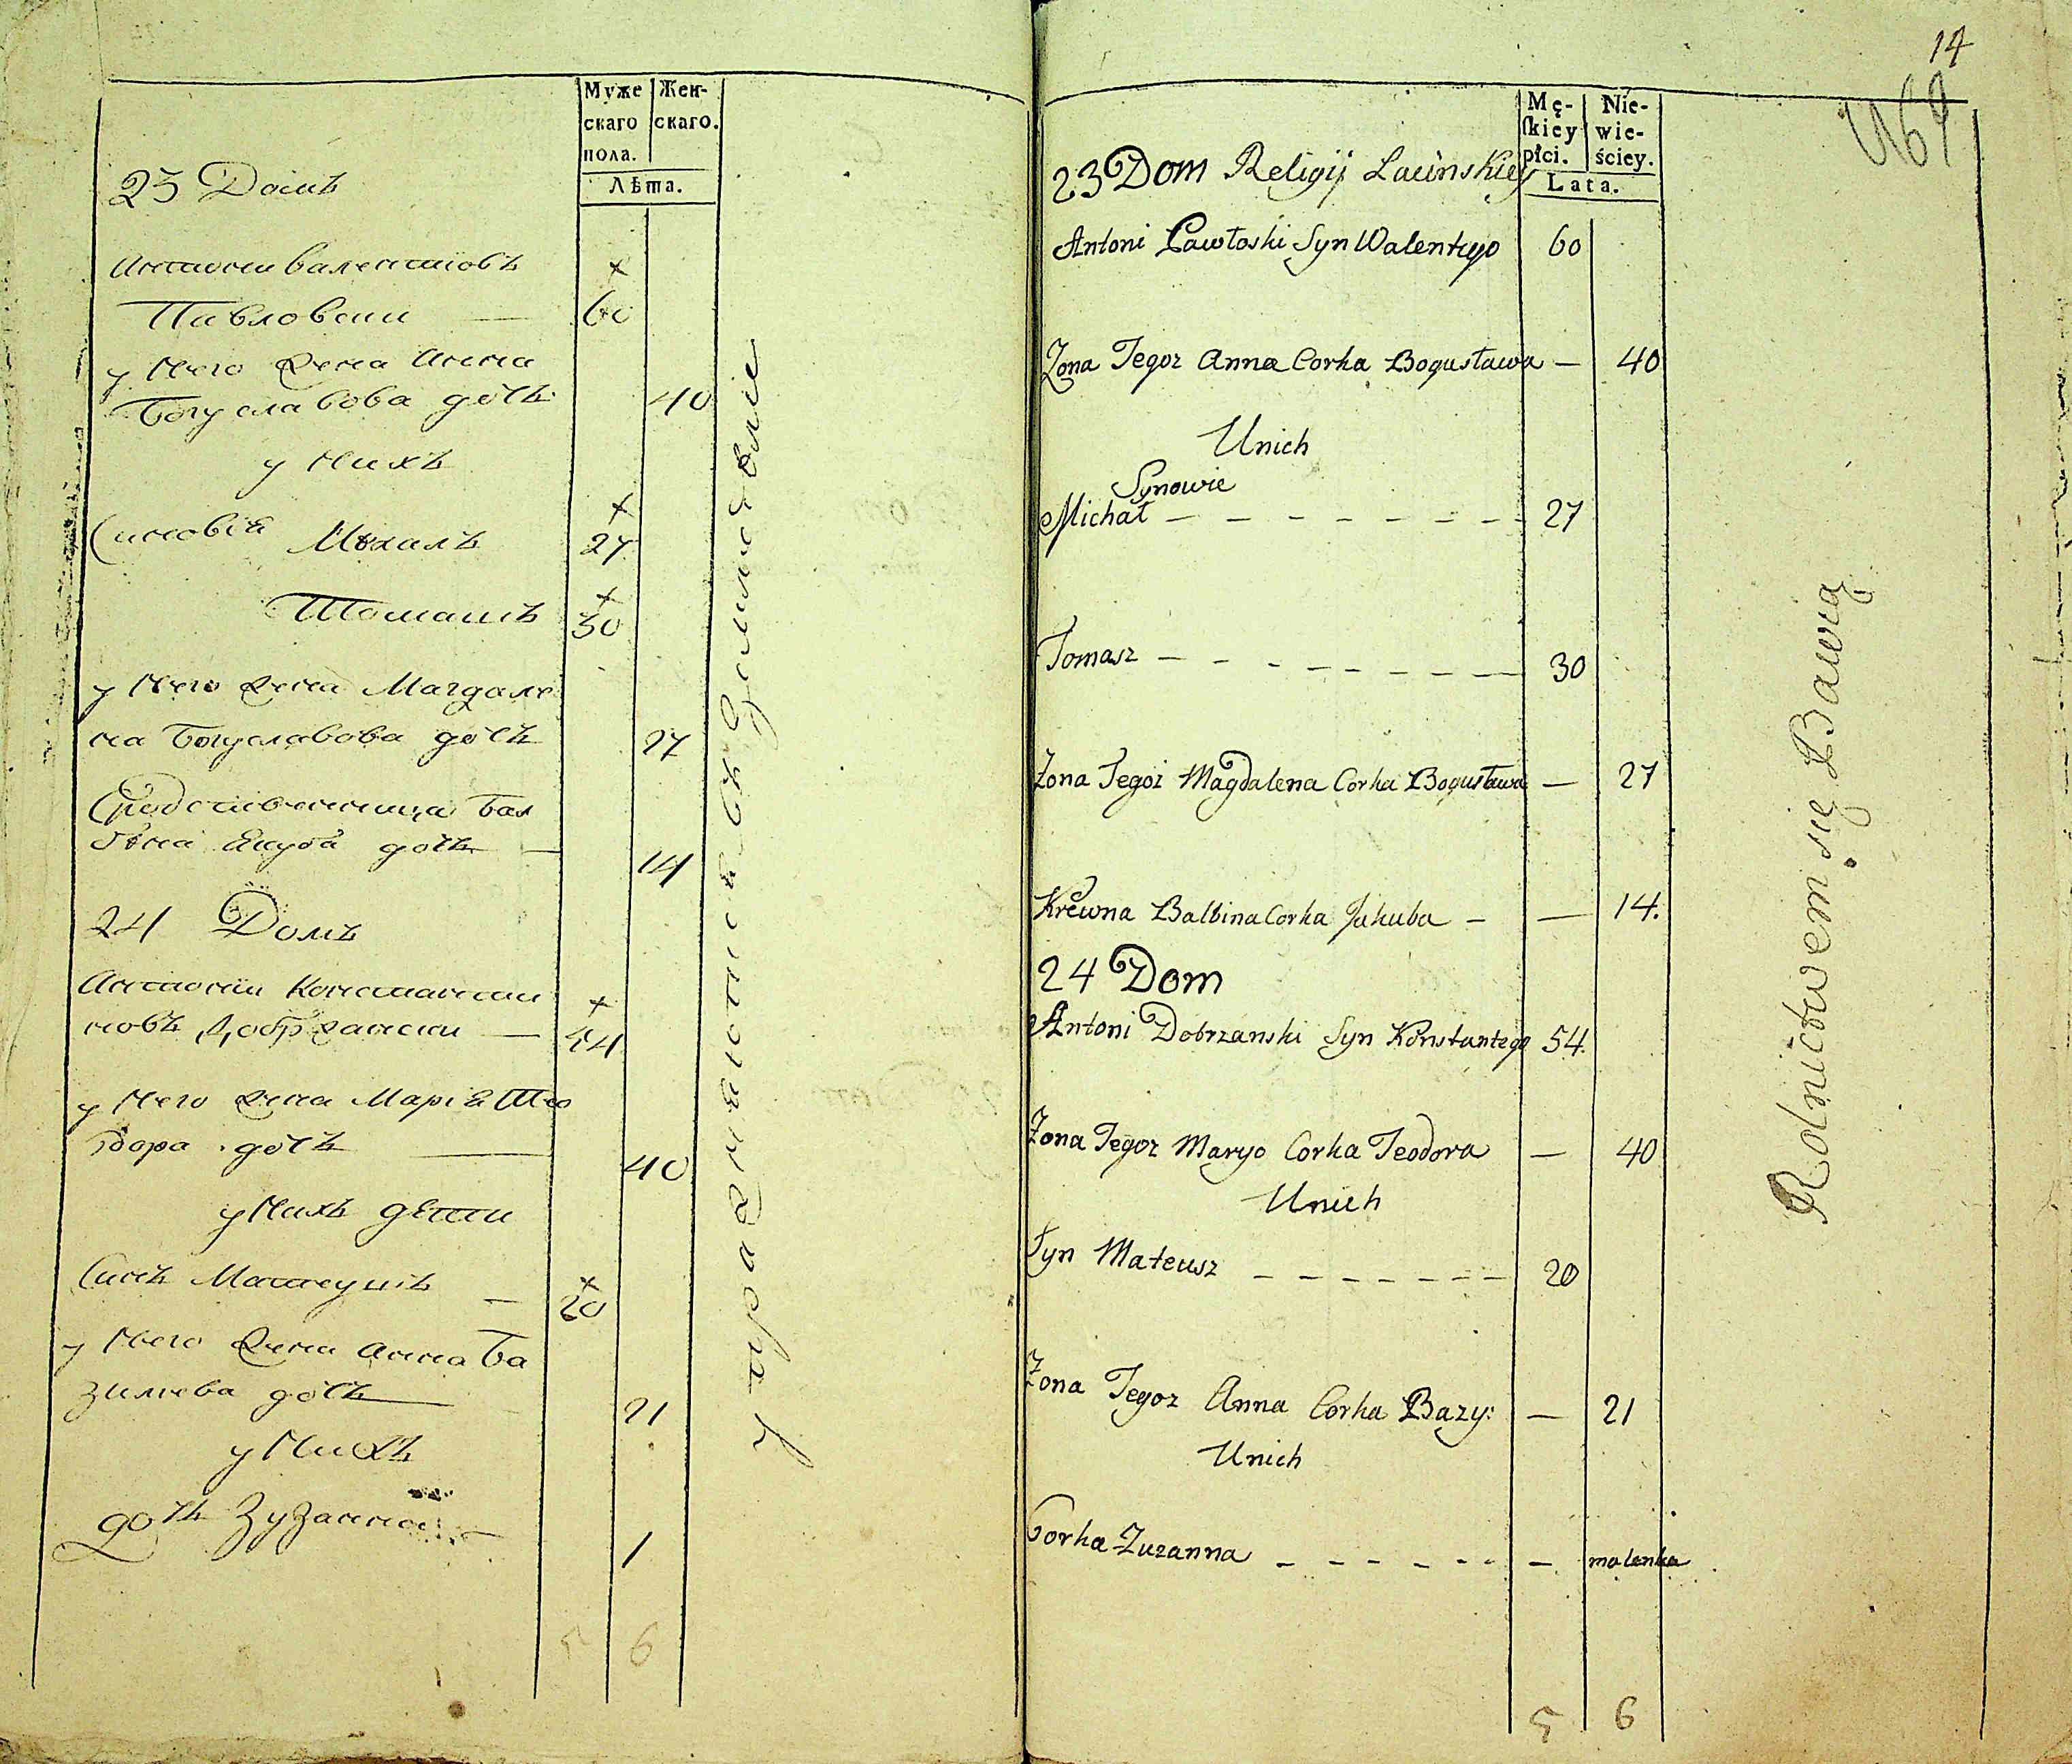 Муже
скаго
пола.
Жен-
скаго.
Лѣта.
23 Домъ
Антони Валентіовъ
Павловски — 60
у Него Жена Анна
Богуславова дочь 40
у Нихъ
Синовія Михалъ 27
Томашъ 30
у Него Жена Магдале
на Богуславова дочь 27
Сродственница Бал
бина Якуба дочь — 14
24 Домъ
Антоній Константи
новъ Добржански — 54
у Него Жена Марія Тео
дора дочь — 40
у Нихъ дѣти
Синъ Матеушъ — 20
у Него Жена Анна Ба
зилева дочь — 21
у Нихъ
дочь Зузанна — 1
5 6
упражняются въ земледѣліе
14
Mę-
ſkiey
płci.
Nie-
wie-
ściey.
Lata.
23 Dom Religij Lacińskiey
Antoni Pawłoski Syn Walentego 60
Zona Tegoz Anna Corka Bogusława — 40
Unich
Synowie
Michał — — — — — — — 27
Tomasz — — — — — — — 30
Zona Tegoż Magdalena Corka Bogusława — 27
Krewna Balbina Corka Jakuba — — 14.
24 Dom
Antoni Dobrzanski Syn Konstantego 54.
Zona Tegoz Maryo Corka Teodora — 40
Unich
Syn Mateusz — — — — — — — 20
Zona Tegoz Anna Corka Bazy: — 21
Unich
Corka Zuzanna — — — — — — malenka
5 6
Rolnictwem się Bawią